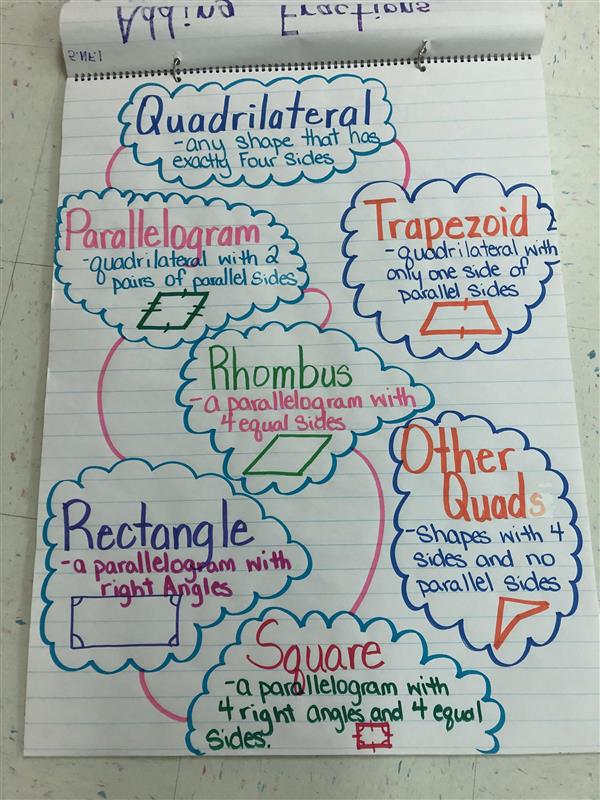 Adding Fractions
5.NF.1
Quadrilateral
-any shape that has
exactly Four sides
Parallelogram
-quadrilateral with 2
pairs of parallel sides
Trapezoid
-quadrilateral with
only one side of
parallel sides
Rhombus
-a parallelogram with
4 equal sides
Other
Quads
-Shapes with 4
sides and no
parallel sides
Rectangle
-a parallelogram with
right Angles
Square
-a parallelogram with
4 right angles and 4 equal
sides.